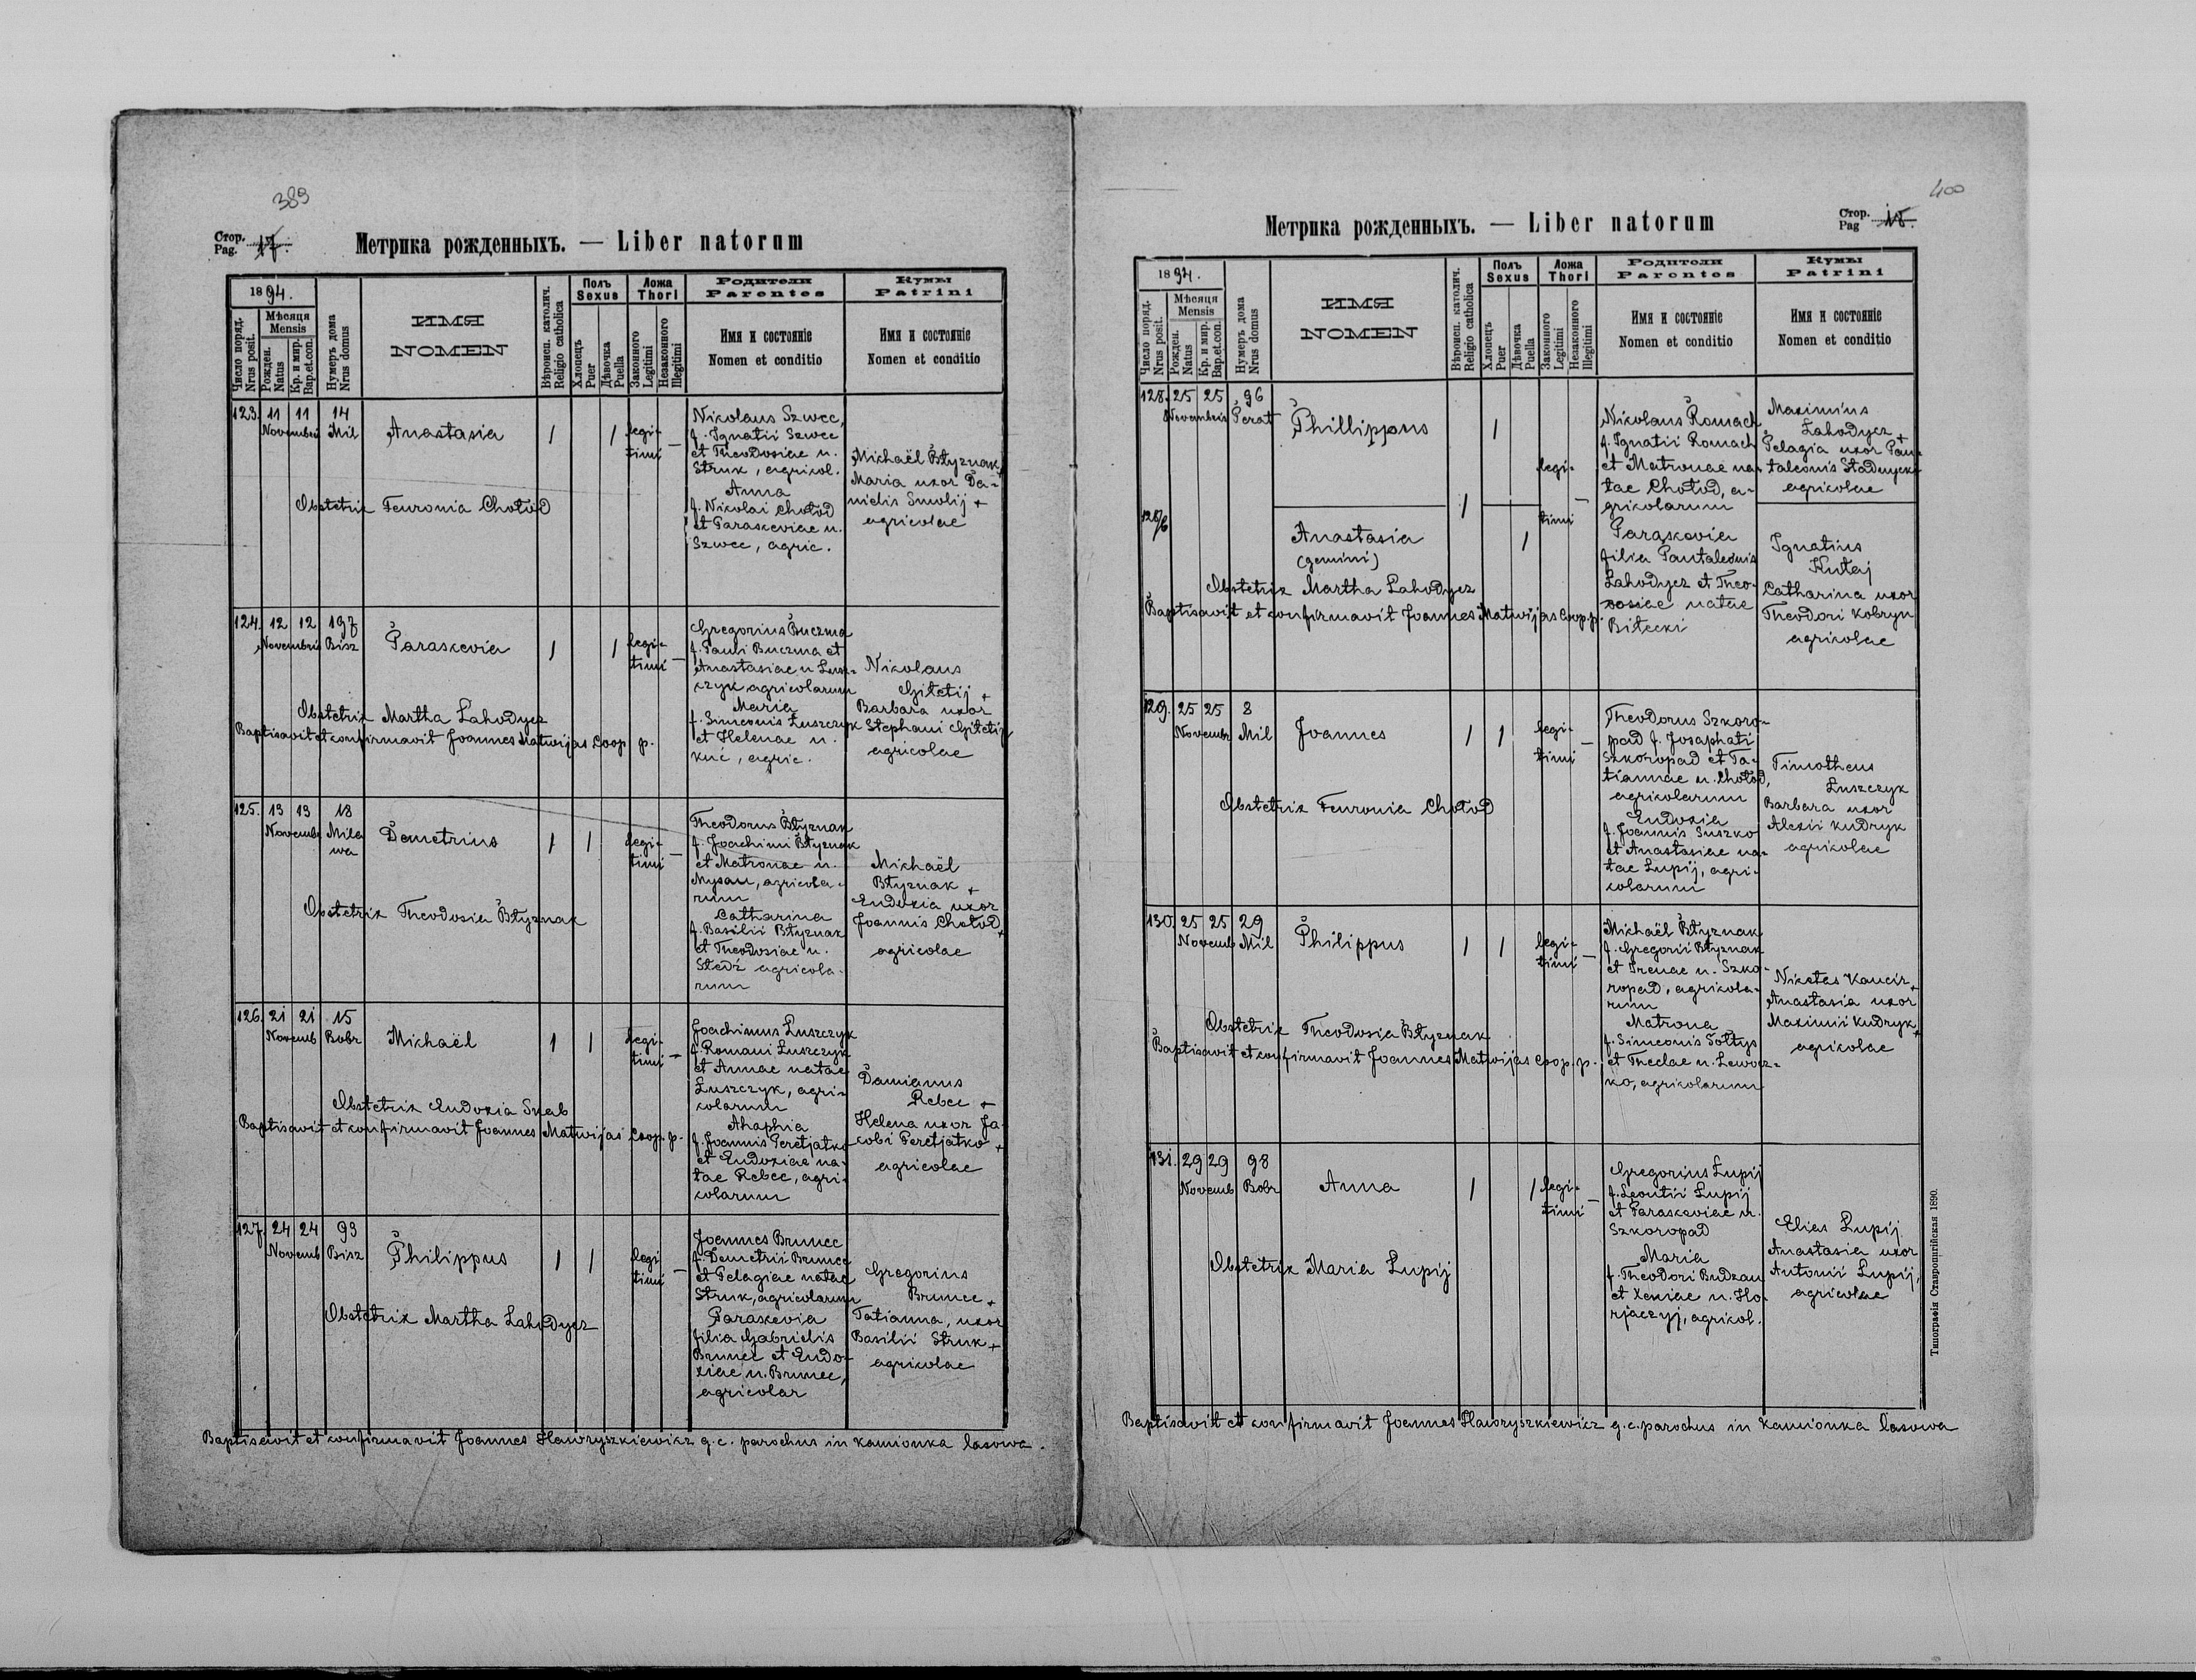 389
Стор.
Pag. 17.
Метрика рожденныхъ. — Liber natorum
1894.
Число поряд.
Nrus posit.
Мѣсяця
Mensis
Рожден.
Natus
Кр. и мир.
Bap.et.con.
Нумеръ дома
Nrus domus
ИМЯ
NOMEN
Вѣроисп. католич.
Religio catholica
Полъ
Sexus
Хлопецъ
Puer
Дѣвочка
Puella
Ложа
Thori
Законного
Legitimi
Незаконного
Illegitimi
Родители
Parentes
Имя и состоянiе
Nomen et conditio
Кумы
Patrini
Имя и состоянiе
Nomen et conditio
123. 11 11 14
Novembris Mil
Anastasia
1 1 legi-
timi —
Nikolaus Szwec,
f. Ignatii Szwec
et Theodosiae n.
Struk, agricol.
Anna
f. Nikolai Chołod
et Paraskeviae n.
Szwec, agric.
Michaël Błyznak +
Maria uxor Da-
nielis Smolij +
agricolae
Obstetrix Feuronia Chołod
124. 12 12 197
Novembris Bisz
Paraskevia
1 1 legi-
timi —
Gregorius Buczma
f. Pauli Buczma et
Anastasiae n Łusz-
czyk agricolarum
Maria
f. Simeonis Łuszczyk
et Helenae n.
Kuć, agric.
Nikolaus
Gitetij +
Barbara uxor
Stephani Gitetij
agricolae
Obstetrix Martha Lahodycz
Baptisavit et confirmavit Joannes Matwijas coop. p.
125. 13 13 18
Novemb Mile
wa
Demetrius
1 1 legi-
timi —
Theodorus Błyznak
f. Joachimi Błyznak
et Matronae n.
Mysan, agricola-
rum
Catharina
f. Basilii Błyznak
et Theodosiae n.
Stedź agricola-
rum
Michaël
Błyznak +
Eudoxia uxor
Joannis Chołod +
agricolae
Obstetrix Theodosia Błyznak
126. 21 21 15
Novemb Bobr
Michaël
1 1 legi-
timi —
Joachimus Łuszczyk
f. Romani Łuszczyk
et Annae natae
Łuszczyk, agri-
colarum
Ahaphia
f. Joannis Peretjatko
et Eudoxiae na-
tae Rebec, agri-
colarum
Damianus
Rebec +
Helena uxor Ja-
cobi Peretjatko +
agricolae
Obstetrix Eudoxia Skab
Baptisavit et confirmavit Joannes Matwijas coop. p.
127. 24 24 93
Novemb Bisz
Philippus
1 1 legi
timi —
Joannes Brunec
f. Demetrii Brunec
et Pelagiae natae
Struk, agricolarum
Paraskevia
filia Gabrielis
Brunec et Eudo-
xiae n. Brunec,
agricolar
Gregorius
Brunec +
Tatianna, uxor
Basilii Struk +
agricolae
Obstetrix Martha Lahodycz
Baptisavit et confirmavit Joannes Hawryszkiewicz g. c. parochus in Kamionka lasowa.
400
Стор.
Pag 18.
Метрика рожденныхъ. — Liber natorum
1894.
Число поряд.
Nrus posit.
Мѣсяця
Mensis
Рожден.
Natus
Кр. и мир.
Bap.et.con.
Нумеръ дома
Nrus domus
ИМЯ
NOMEN
Вѣроисп. католич.
Religio catholica
Полъ
Sexus
Хлопецъ
Puer
Дѣвочка
Puella
Ложа
Thori
Законного
Legitimi
Незаконного
Illegitimi
Родители
Parentes
Имя и состоянiе
Nomen et conditio
Кумы
Patrini
Имя и состоянiе
Nomen et conditio
128. 25 25 96
Novembris Perat
Phillippus
1
legi-
timi —
Nikolaus Romach
f. Ignatii Romach
et Matronae na-
tae Chołod, a-
gricolarum
Paraskevia
filia Pantaleonis
Lahodycz et Theo-
dosiae natae
Biłecki
Maximus
Lahodycz +
Pelagia uxor Pan-
taleonis Stadnycki
agricolae
128/b
1
Anastasia
(gemini)
1
Ignatius
Kutaj
Catharina uxor
Theodori Kobryn
agricolae
Obstetrix Martha Lahodycz
Baptisavit et confirmavit Joannes Matwijas coop. p.
129. 25 25 8
Novembr Mil
Joannes
1 1 legi-
timi —
Theodorus Szkoro-
pad f. Josaphati
Szkoropad et Ta-
tiannae n. Chołod,
agricolarum
Eudoxia
f. Joannis Suszko
et Anastasiae na-
tae Łupij, agri-
colarum
Timotheus
Łuszczyk
Barbara uxor
Alexii Kudryk
agricolae
Obstetrix Feuronia Chołod
130. 25 25 29
Novemb Mil
Philippus
1 1 legi-
timi —
Michaël Błyznak
f. Gregorii Błyznak
et Irenae n. Szko-
ropad, agricola-
rum
Matrona
f. Simeonis Sołtys
et Theclae n. Lewocz-
ko, agricolarum
Niketas Kancir +
Anastasia uxor
Maximii Kudryk +
agricolae
Obstetrix Theodosia Błyznak
Baptisavit et confirmavit Joannes Matwijas coop. p.
131. 29 29 98
Novemb Bobr
Anna
1 1 legi-
timi —
Gregorius Łupij
f. Leontii Łupij
et Paraskeviae n.
Szkoropad
Maria
f. Theodori Budzan
et Xeniae n. Ho-
rjaczyj, agricol.
Elias Łupij
Anastasia uxor
Antonii Łupij,
agricolae
Obstetrix Maria Łupij
Baptisavit et confirmavit Joannes Hawryszkiewicz g. c. parochus in Kamionka lasowa
Типографiя Ставропигiйская 1890.